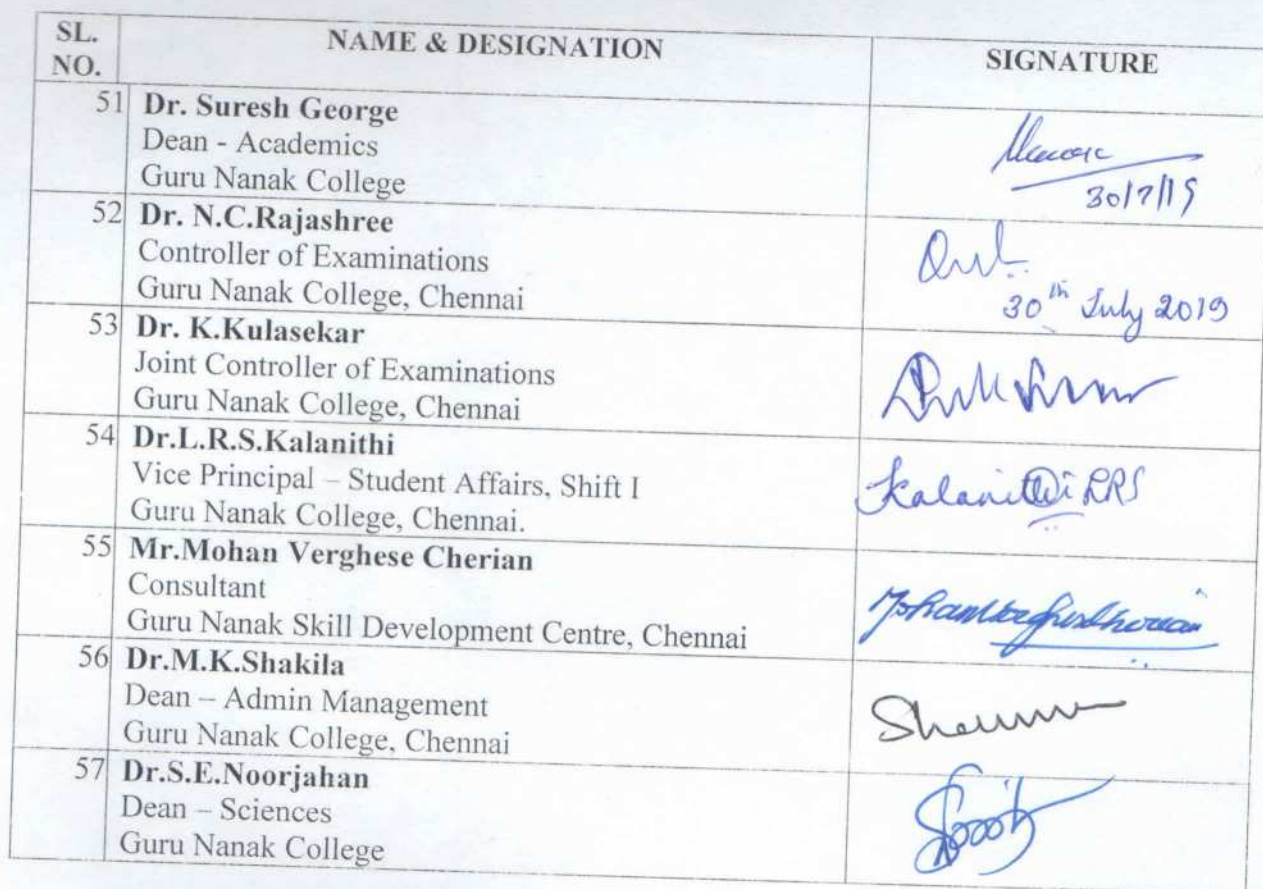 SL. NO.
NAME & DESIGNATION
SIGNATURE
51
Dr. Suresh George
Dean - Academics
Guru Nanak College
30/7/19
52
Dr. N.C.Rajashree
Controller of Examinations
Guru Nanak College, Chennai
30th July 2019
53
Dr. K.Kulasekar
Joint Controller of Examinations
Guru Nanak College, Chennai
54
Dr.L.R.S.Kalanithi
Vice Principal – Student Affairs, Shift I
Guru Nanak College, Chennai.
Kalanithi LRS
55
Mr.Mohan Verghese Cherian
Consultant
Guru Nanak Skill Development Centre, Chennai
56
Dr.M.K.Shakila
Dean – Admin Management
Guru Nanak College, Chennai
57
Dr.S.E.Noorjahan
Dean – Sciences
Guru Nanak College